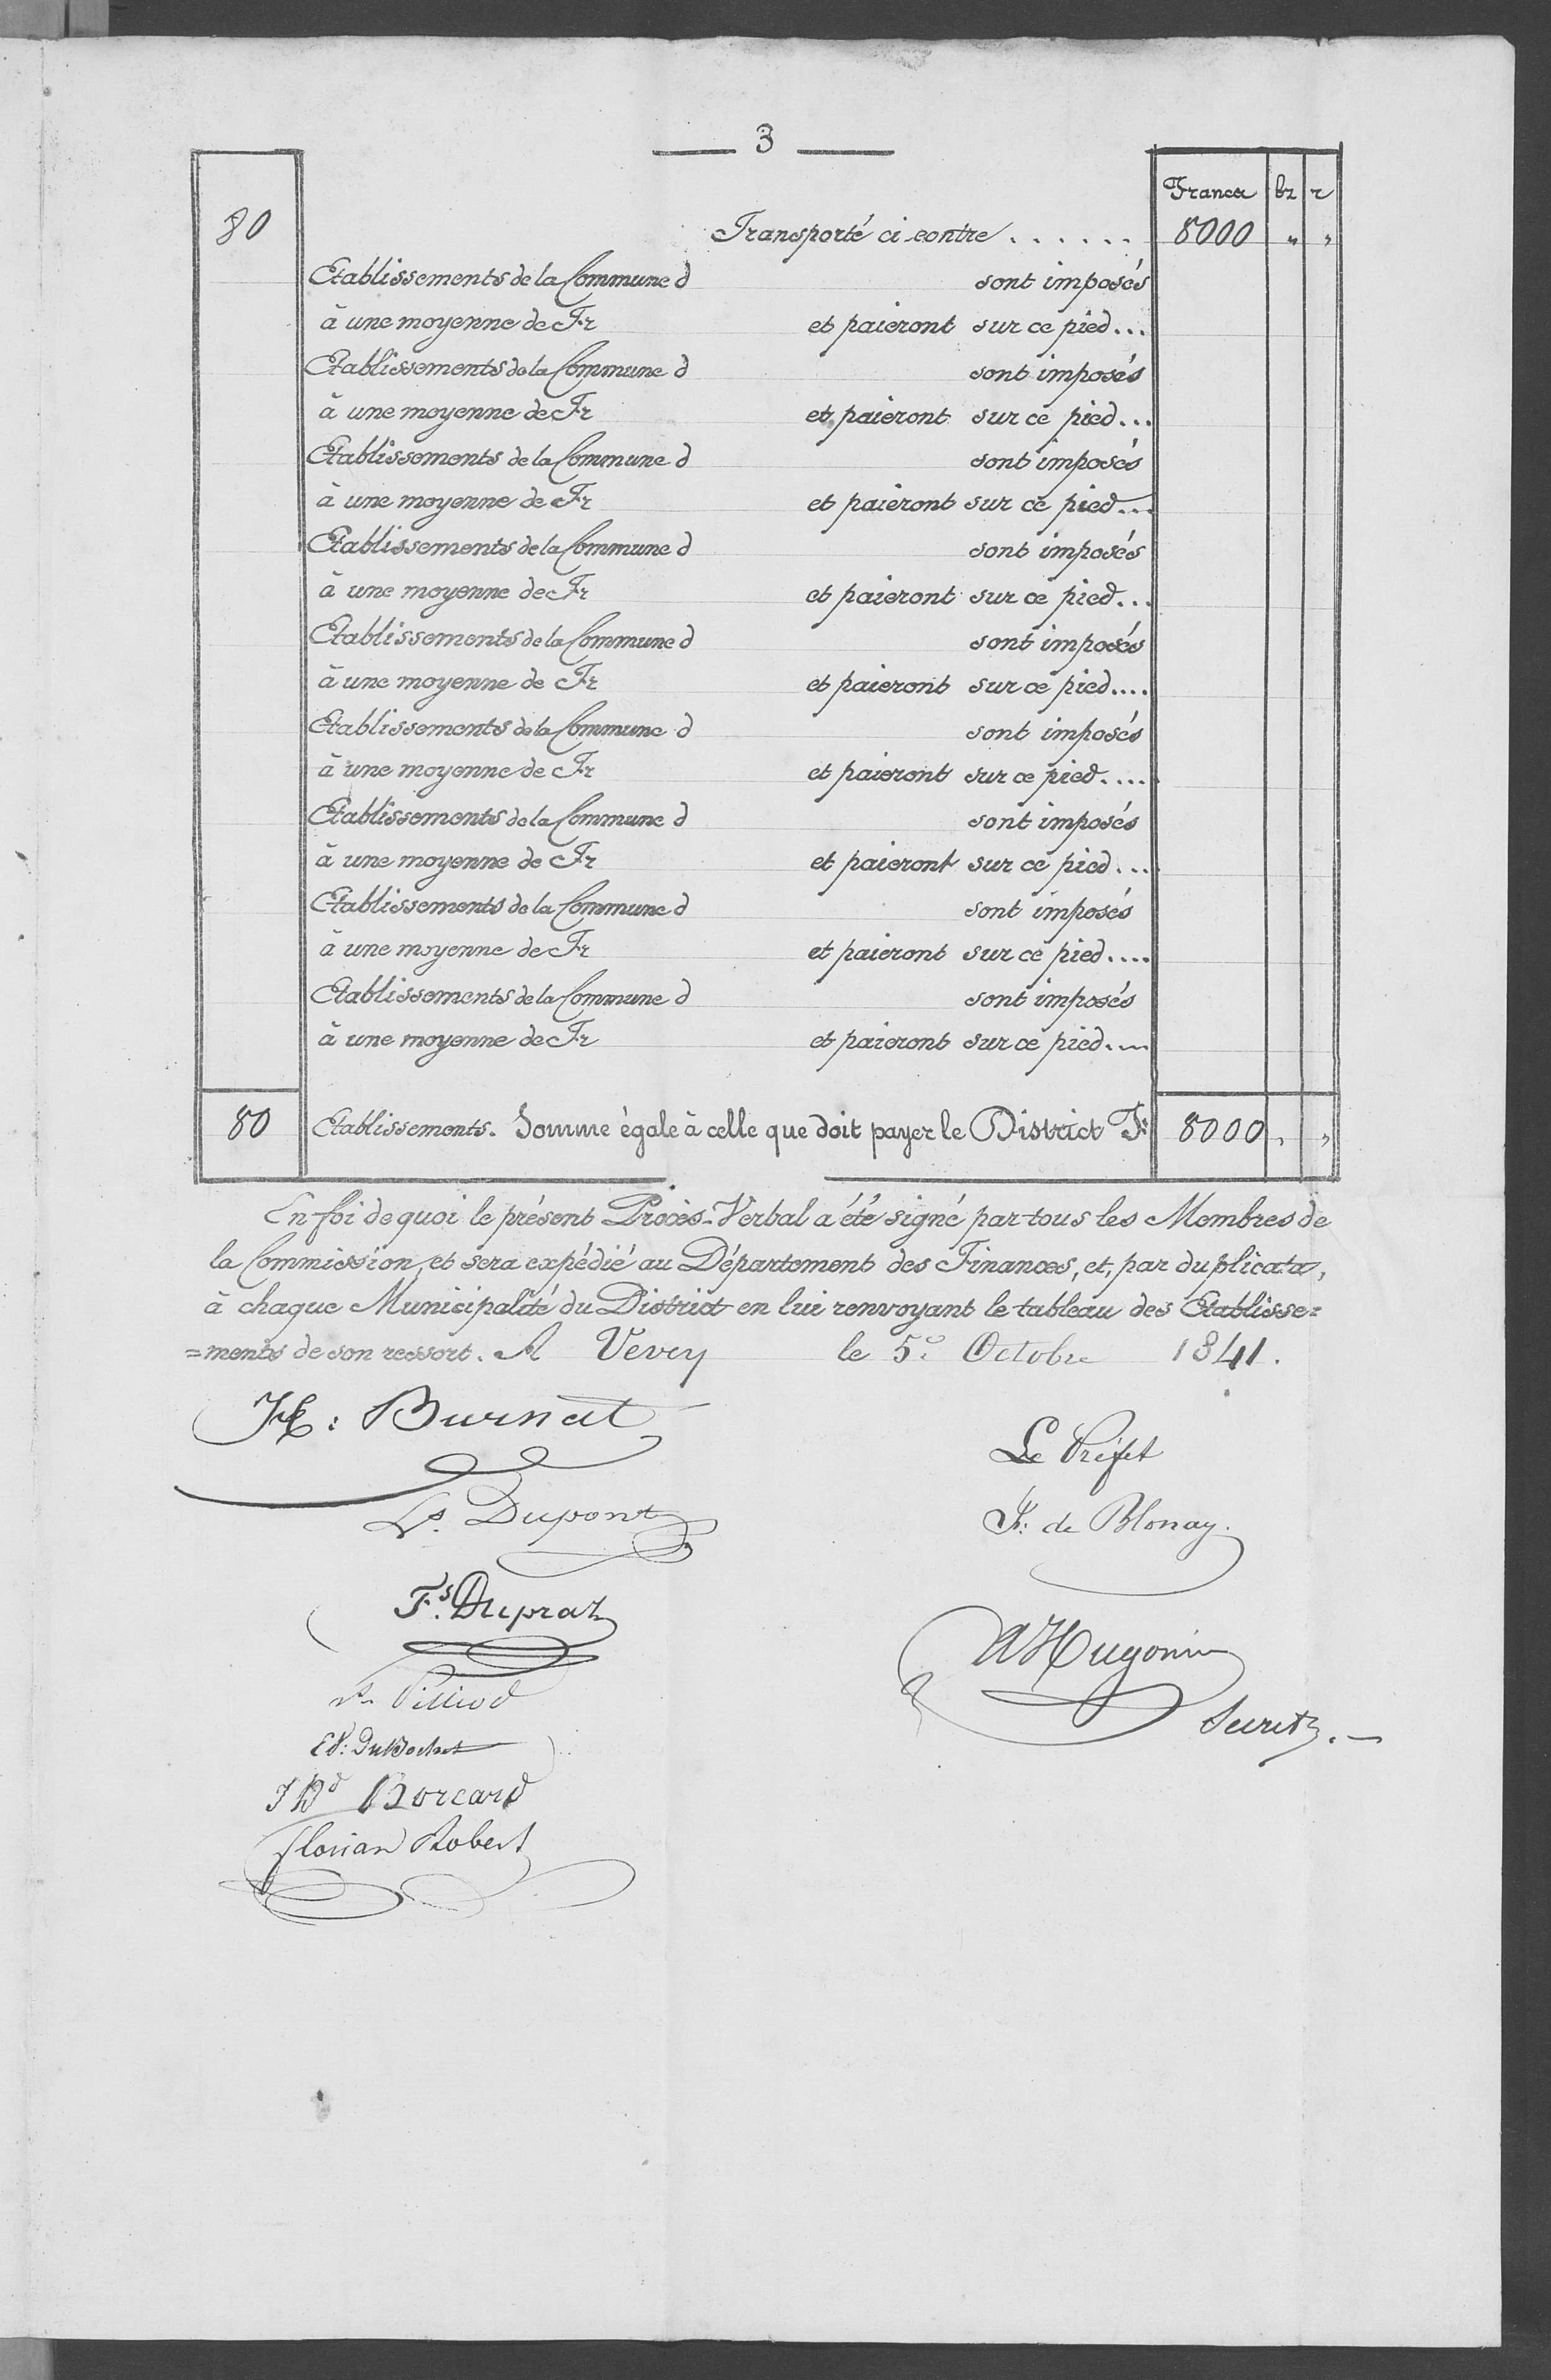 3
Francs bz r
80 Transporté ci-contre . . . . . . 8000 " "
Etablissements de la Commune d sont imposés
à une moyenne de Fr et paieront sur ce pied...
Etablissements de la Commune d sont imposés
à une moyenne de Fr et paieront sur ce pied...
Etablissements de la Commune d sont imposés
à une moyenne de Fr et paieront sur ce pied...
Etablissements de la Commune d sont imposés
à une moyenne de Fr et paieront sur ce pied...
Etablissements de la Commune d sont imposés
à une moyenne de Fr et paieront sur ce pied....
Etablissements de la Commune d sont imposés
à une moyenne de Fr et paieront sur ce pied....
Etablissements de la Commune d sont imposés
à une moyenne de Fr et paieront sur ce pied...
Etablissements de la Commune d sont imposés
à une moyenne de Fr et paieront sur ce pied....
Etablissements de la Commune d sont imposés
à une moyenne de Fr et paieront sur ce pied....
80 Etablissements. Somme égale à celle que doit payer le District Fr 8000 " "
En foi de quoi le présent Procès-Verbal a été signé par tous les Membres de
la Commission, et sera expédié au Département des Finances, et, par duplicata,
à chaque Municipalité du District en lui renvoyant le tableau des Etablisse=
=ments de son ressort. A Vevey le 5e Octobre 1841.
Burnat
Le Préfet
Ls. Dupont
F: de Blonay.
Fs. Dupraz
A Hugonin
Pilliod
Secret.
Ed: DuBochet
Borcard
Florian Robert